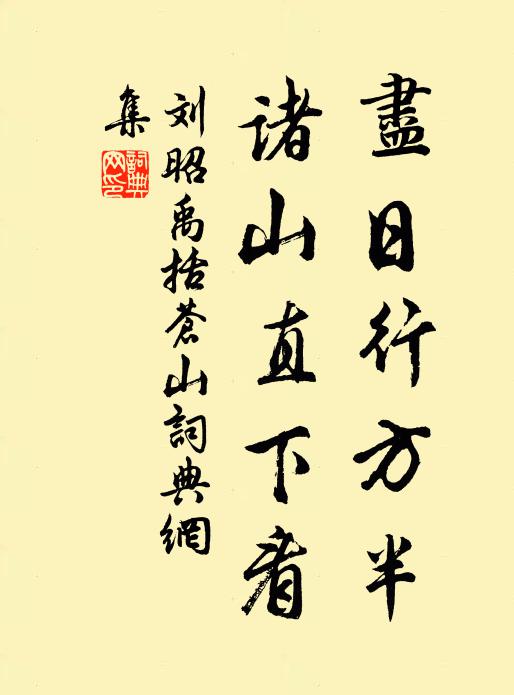 盡日行方半
諸山直下看
刘昭禹括蒼山詞典網
集
詞典
网印